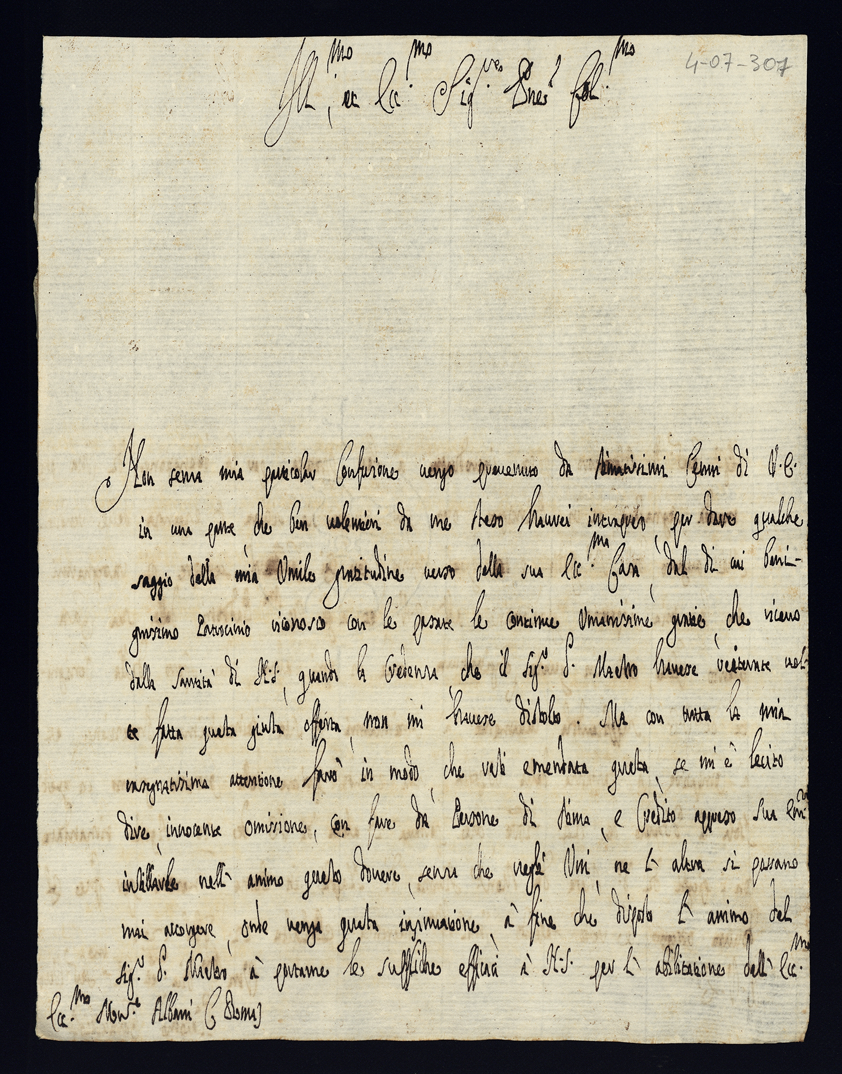 4-07-307
Ill.mo, et Ecc.mo Sig.re Pne Col.mo
Non senza mia particolar Confusione vengo prevenuto da stimatissimi Cenni di V. E.
in una parte che ben volentieri da me stesso haverei intrapreso, per dare qualche
saggio della mia Umile gratitudine verso della sua Ecc.ma Casa, dal di cui beni-
gnissimo Patrocinio riconosco con le passate le continue Umanissime gratie, che ricevo
dalla Santità di N.S., quando la Credenza, che il Sig.r P. Maestro havesse reiterate vol-
te fatta questa giusta offerta, non mi havesse distolto. Ma con tutta la mia
attentione farò in modo, che resti emendata questa, se mi è lecito
dire, innocente omissione, con fare da Persone di stima, e Credito appresso Sua
instillarle nell' animo questo dovere, senza che negl' Uni, ne l' altra si possano
mai accorgere, onde venga questa insinuatione, à fine che disposto l' animo del
Sig.r P. Maestro à portarne le suppliche efficaci à N.S. per l' abilitatione dell' Ecc.mo
Ecc.mo Albani (Roma)